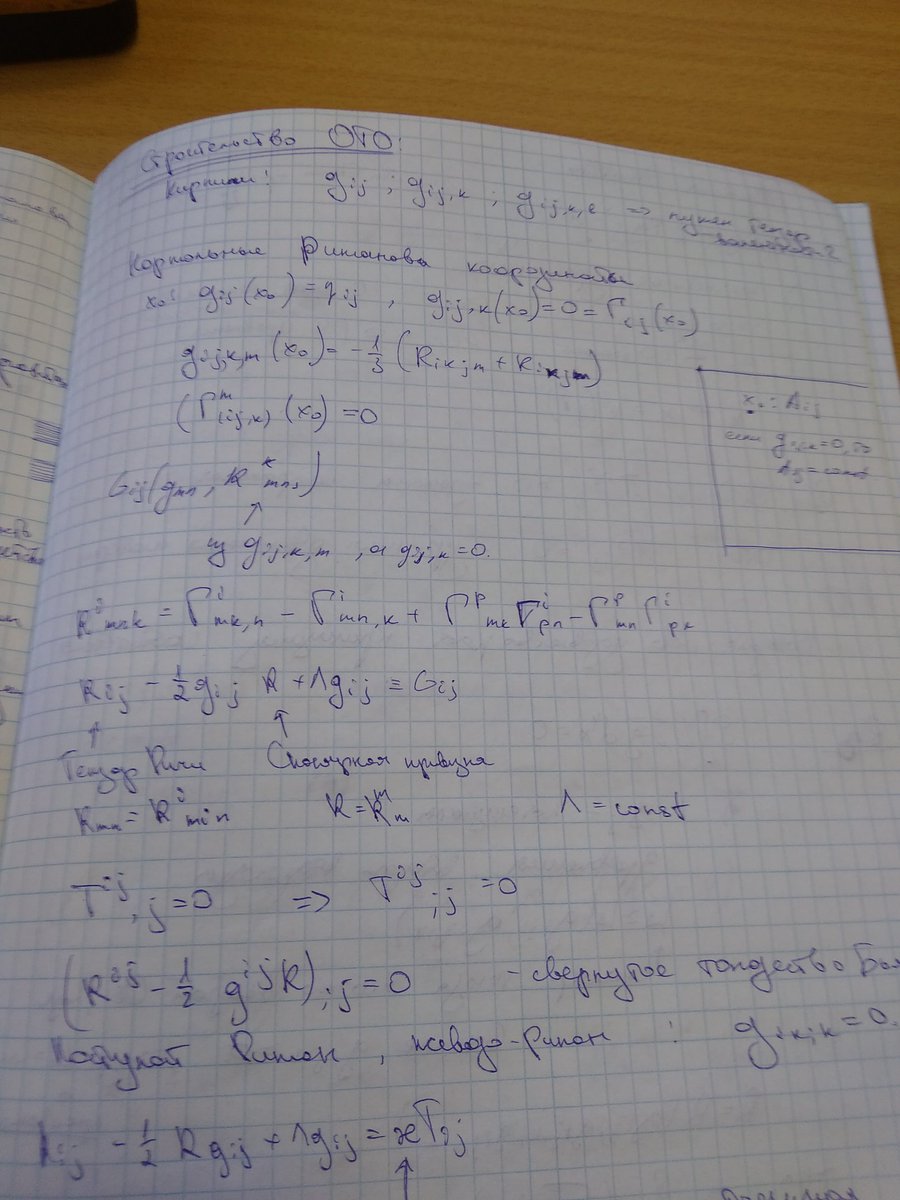 Строительство ОТО:
Кирпичи! gij ; gij,k ; gij,k,e => нужен тензор
валентности 2
Нормальные Римановы координаты
x₀: gij(x₀) = ηij , gij,k(x₀) = 0 = Γij(x₀)
gij,k,m(x₀) = -1/3 (Rikjm + Ri
(Γᵐ(ij,k)(x₀) = 0
x₀: Aij
если gij,k=0, то
Aij = const
Gij(gmn, R
↑
из gij,k,m , а gij,k = 0.
Rⁱmnk = Γⁱmk,n - Γⁱmn,k + ΓᵖmkΓⁱpn - ΓᵖmnΓⁱpk
Rij - 1/2 gij R + Λgij ≡ Gij
↑ ↑
Тензор Риччи Скалярная кривизна
Rmn = Rⁱmin R = Rᵐm Λ = const
Tⁱʲ,j = 0 => Tⁱʲ;j = 0
(Rⁱʲ - 1/2 gⁱʲR);j = 0 - свернутое тождество
Риман , псевдо-Риман : gik;k = 0.
- 1/2 R gij + Λgij = æTij
↑